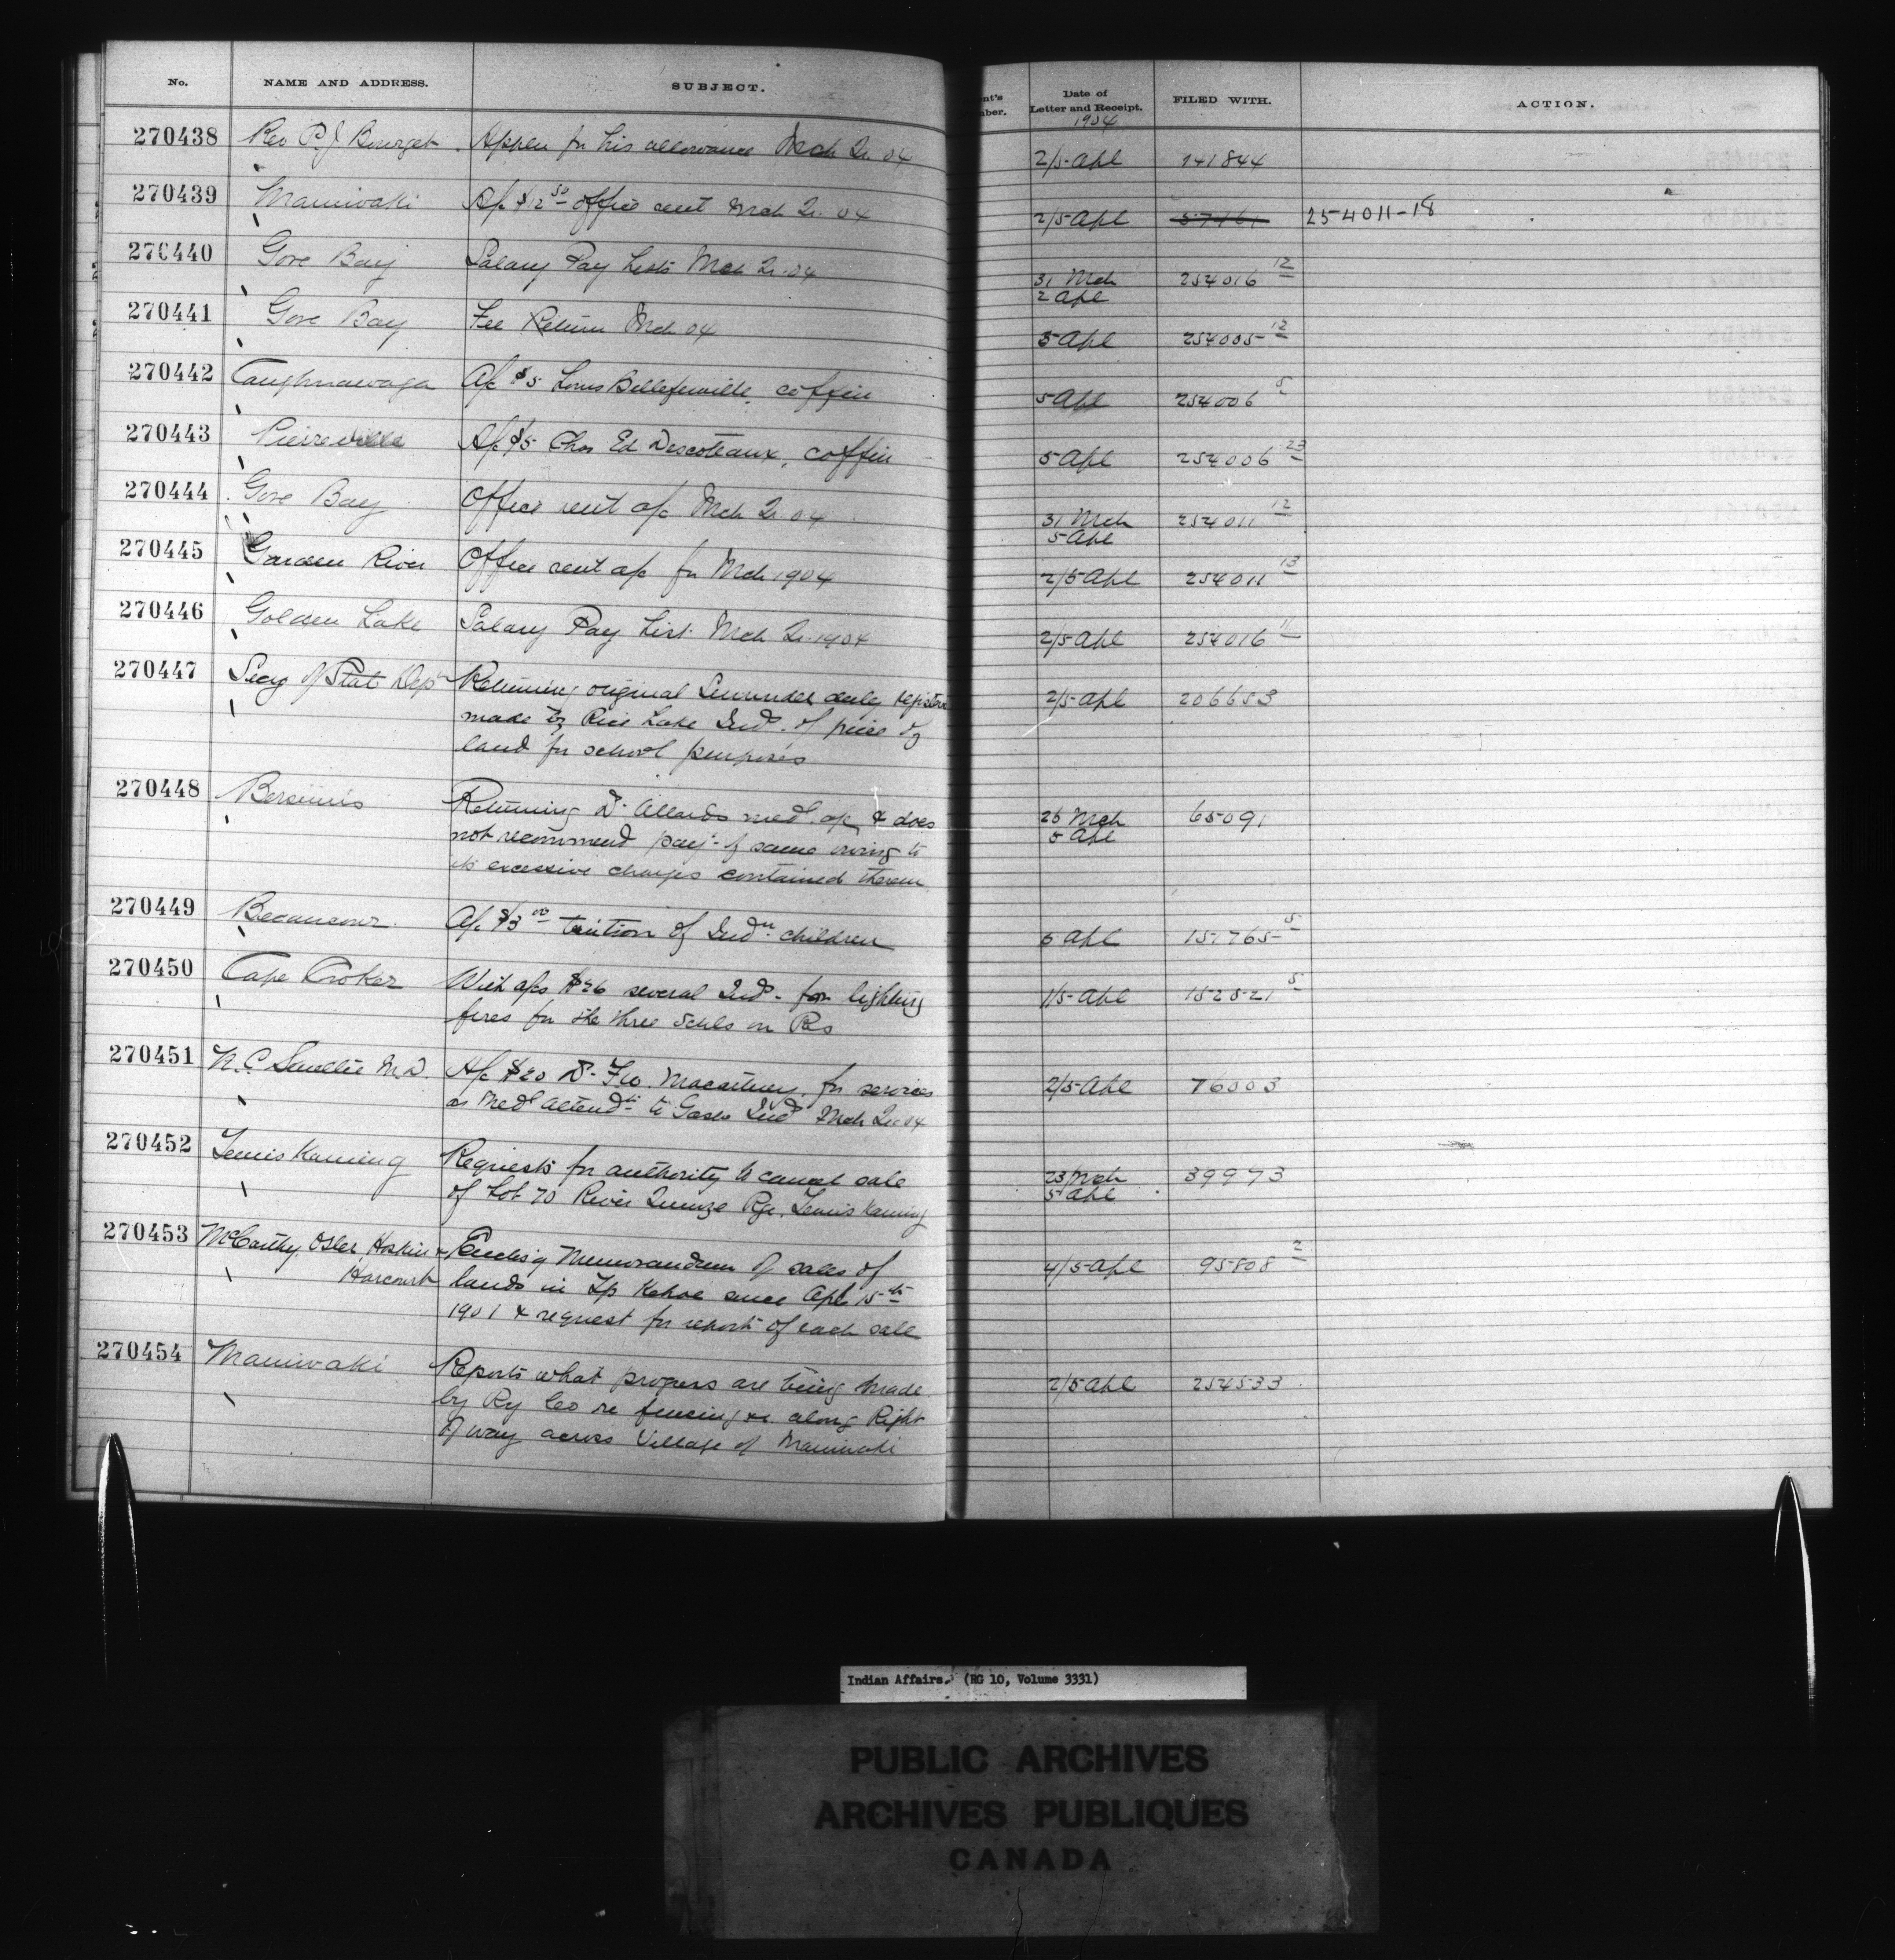 No. NAME AND ADDRESS. SUBJECT. Date of Letter and Receipt. FILED WITH. ACTION.
1904
270438 Rev P. J Bourget Applen for his allowance Mch Qr 04 2/5 Apl 141844
270439 Maniwaki A/c $12 50 office rent Mch Qr 04 2/5 Apl 254011-18
270440 Gore Bay Salary Pay Lists Mch Qr 04 31 Mch 254016 12
2 Apl
270441 Gore Bay Fee Return Mch 04 5 Apl 254005 12
270442 Caughnawaga A/c $5 Louis Bellefeuille, coffin 5 Apl 254006 5
270443 Pierreville A/c $5 Chas Ed Descoteaux, coffin 5 Apl 254006 23
270444 Gore Bay Office rent a/c Mch Qr 04 31 Mch 254011 12
5 Apl
270445 Garden River Office rent a/c for Mch 1904 2/5 Apl 254011 13
270446 Golden Lake Salary Pay List Mch Qr 1904 2/5 Apl 254016 11
270447 Secy of State Dept Returning original Surrender duly 2/5 Apl 206653
made by Rice Lake Inds. of piece of
land for school purposes
270448 Bersimis Returning Dr Allards med. a/c, & does 26 Mch 65091
not recommend payt of same owing to 5 Apl
excessive charges contained therein
270449 Becancour A/c $3 00 tuition of Indn children 5 Apl 151765 5
270450 Cape Croker With a/cs $26 several Inds for lighting 1/5 Apl 152521 5
fires for the three schls on Res
270451 N. C. Smellie M.D. A/c $20 Dr Macartney, for services 2/5 Apl 76003
as Medl attendt to Inds Mch Qr 04
270452 Temiskaming Requests for authority to cancel sale 23 Mch 39973
of Lot 70 River Quinze Rge. Temiskaming 5 Apl
270453 McCarthy, Osler, Hoskin & Enclosg Memorandum of sales of 4/5 Apl 95808 2
Harcourt lands in Tp Kehoe since Apl 15th
1901 & request for report of each sale
270454 Maniwaki Reports what progress are being made 2/5 Apl 254533
by Ry Co re fencing &c along Right
of way across Village of Maniwaki
Indian Affairs. (RG 10, Volume 3331)
PUBLIC ARCHIVES
ARCHIVES PUBLIQUES
CANADA